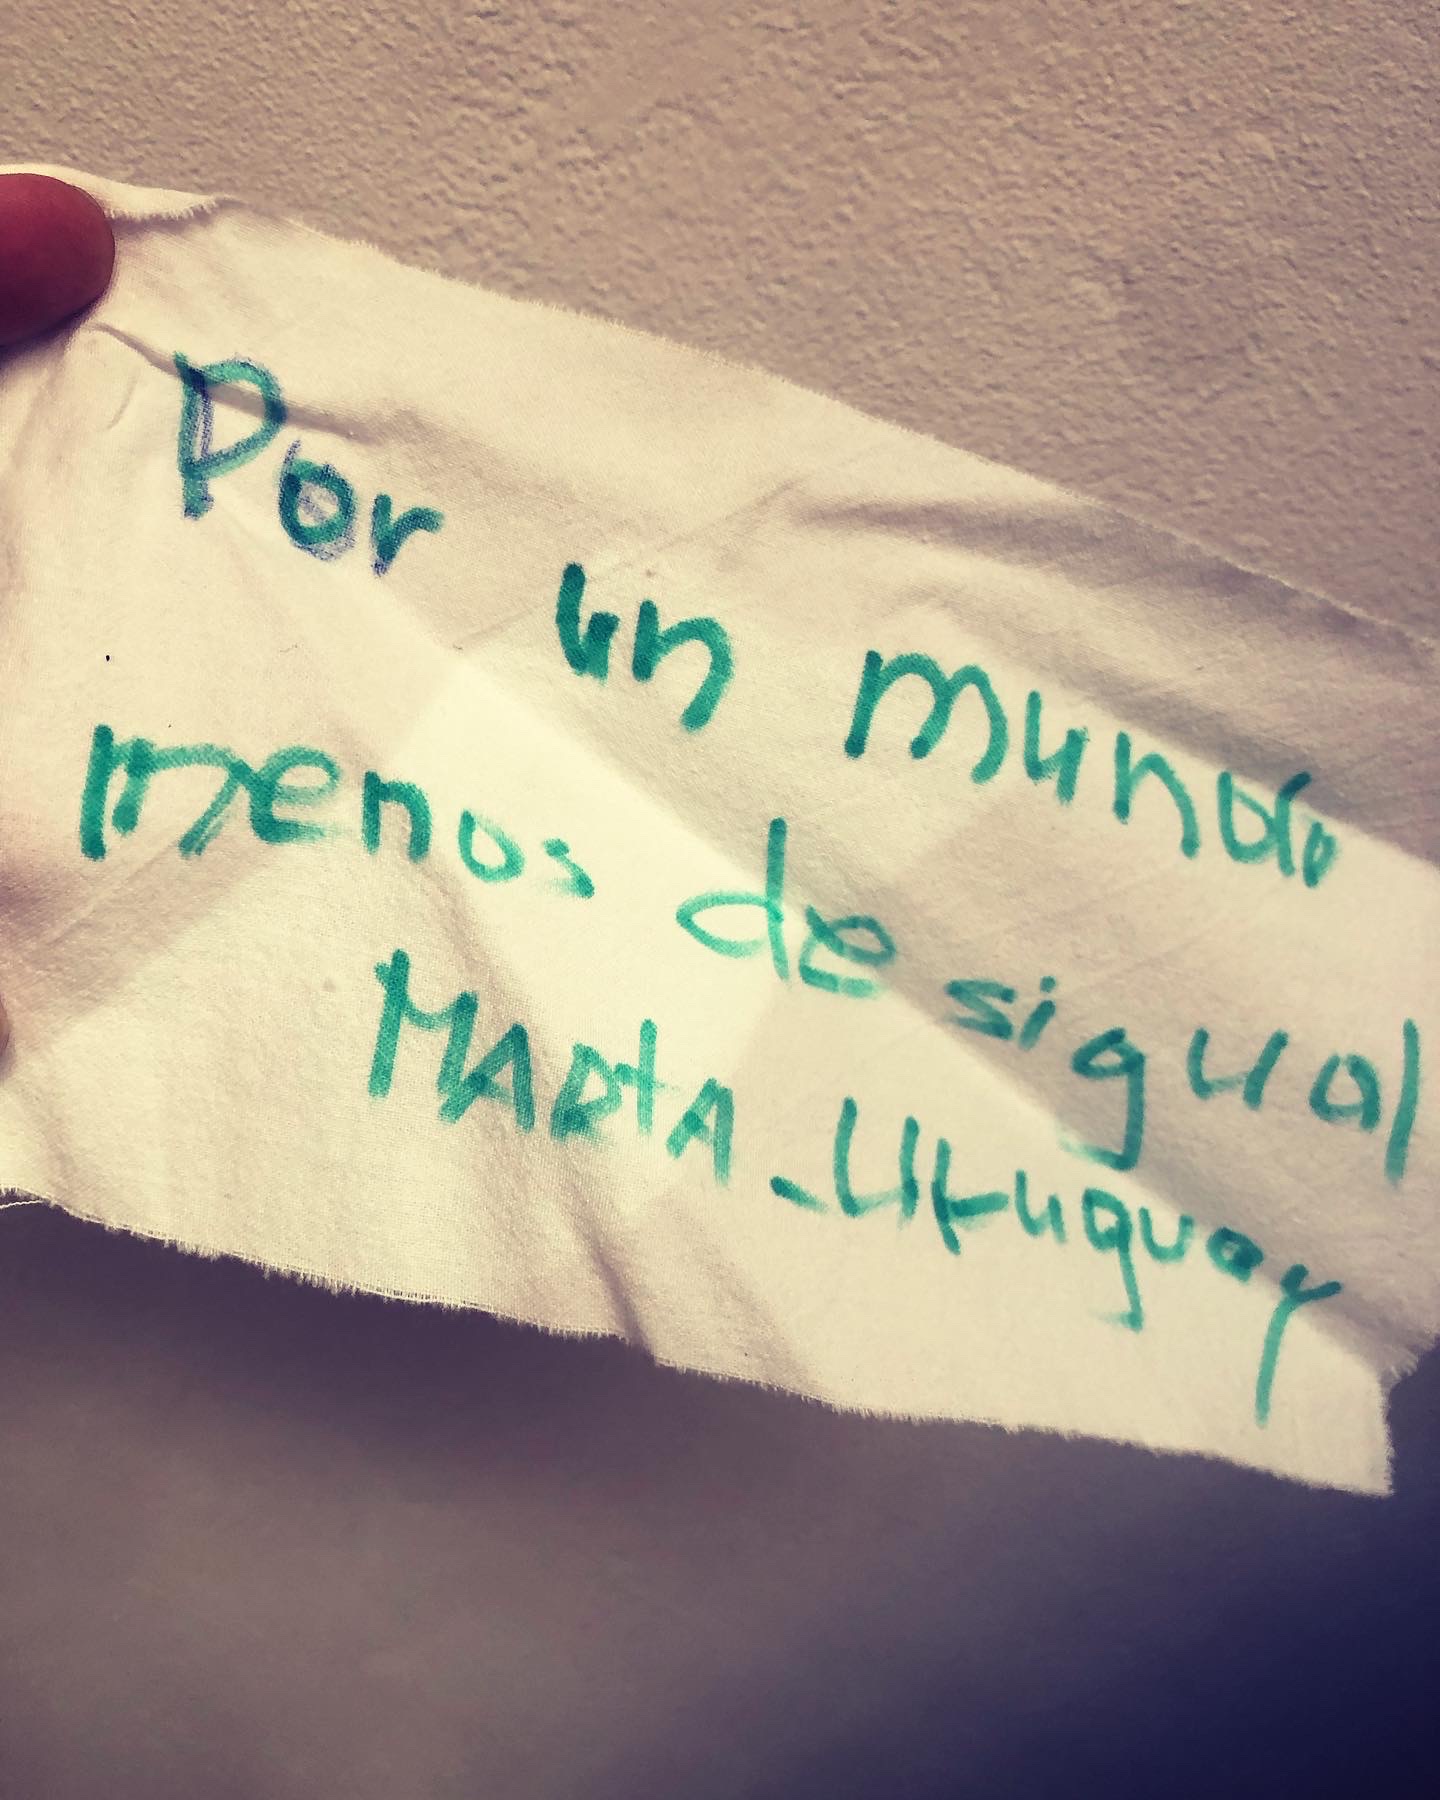 Por un mundo
menos desigual
MARtA - Uruguay